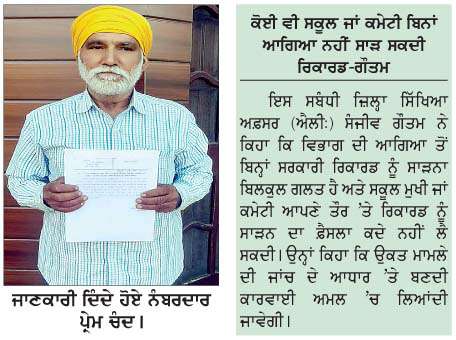 ਜਾਣਕਾਰੀ ਦਿੰਦੇ ਹੋਏ ਨੰਬਰਦਾਰ
ਪ੍ਰੇਮ ਚੰਦ।
ਕੋਈ ਵੀ ਸਕੂਲ ਜਾਂ ਕਮੇਟੀ ਬਿਨਾਂ
ਆਗਿਆ ਨਹੀਂ ਸਾੜ ਸਕਦੀ
ਰਿਕਾਰਡ-ਗੌਤਮ
ਇਸ ਸਬੰਧੀ ਜ਼ਿਲ੍ਹਾ ਸਿੱਖਿਆ
ਅਫ਼ਸਰ (ਐਲੀ:) ਸੰਜੀਵ ਗੌਤਮ ਨੇ
ਕਿਹਾ ਕਿ ਵਿਭਾਗ ਦੀ ਆਗਿਆ ਤੋਂ
ਬਿਨ੍ਹਾਂ ਸਰਕਾਰੀ ਰਿਕਾਰਡ ਨੂੰ ਸਾੜਨਾ
ਬਿਲਕੁਲ ਗਲਤ ਹੈ ਅਤੇ ਸਕੂਲ ਮੁਖੀ ਜਾਂ
ਕਮੇਟੀ ਆਪਣੇ ਤੌਰ 'ਤੇ ਰਿਕਾਰਡ ਨੂੰ
ਸਾੜਨ ਦਾ ਫ਼ੈਸਲਾ ਕਦੇ ਨਹੀਂ ਲੈ
ਸਕਦੀ। ਉਨ੍ਹਾਂ ਕਿਹਾ ਕਿ ਉਕਤ ਮਾਮਲੇ
ਦੀ ਜਾਂਚ ਦੇ ਆਧਾਰ 'ਤੇ ਬਣਦੀ
ਕਾਰਵਾਈ ਅਮਲ 'ਚ ਲਿਆਂਦੀ
ਜਾਵੇਗੀ।